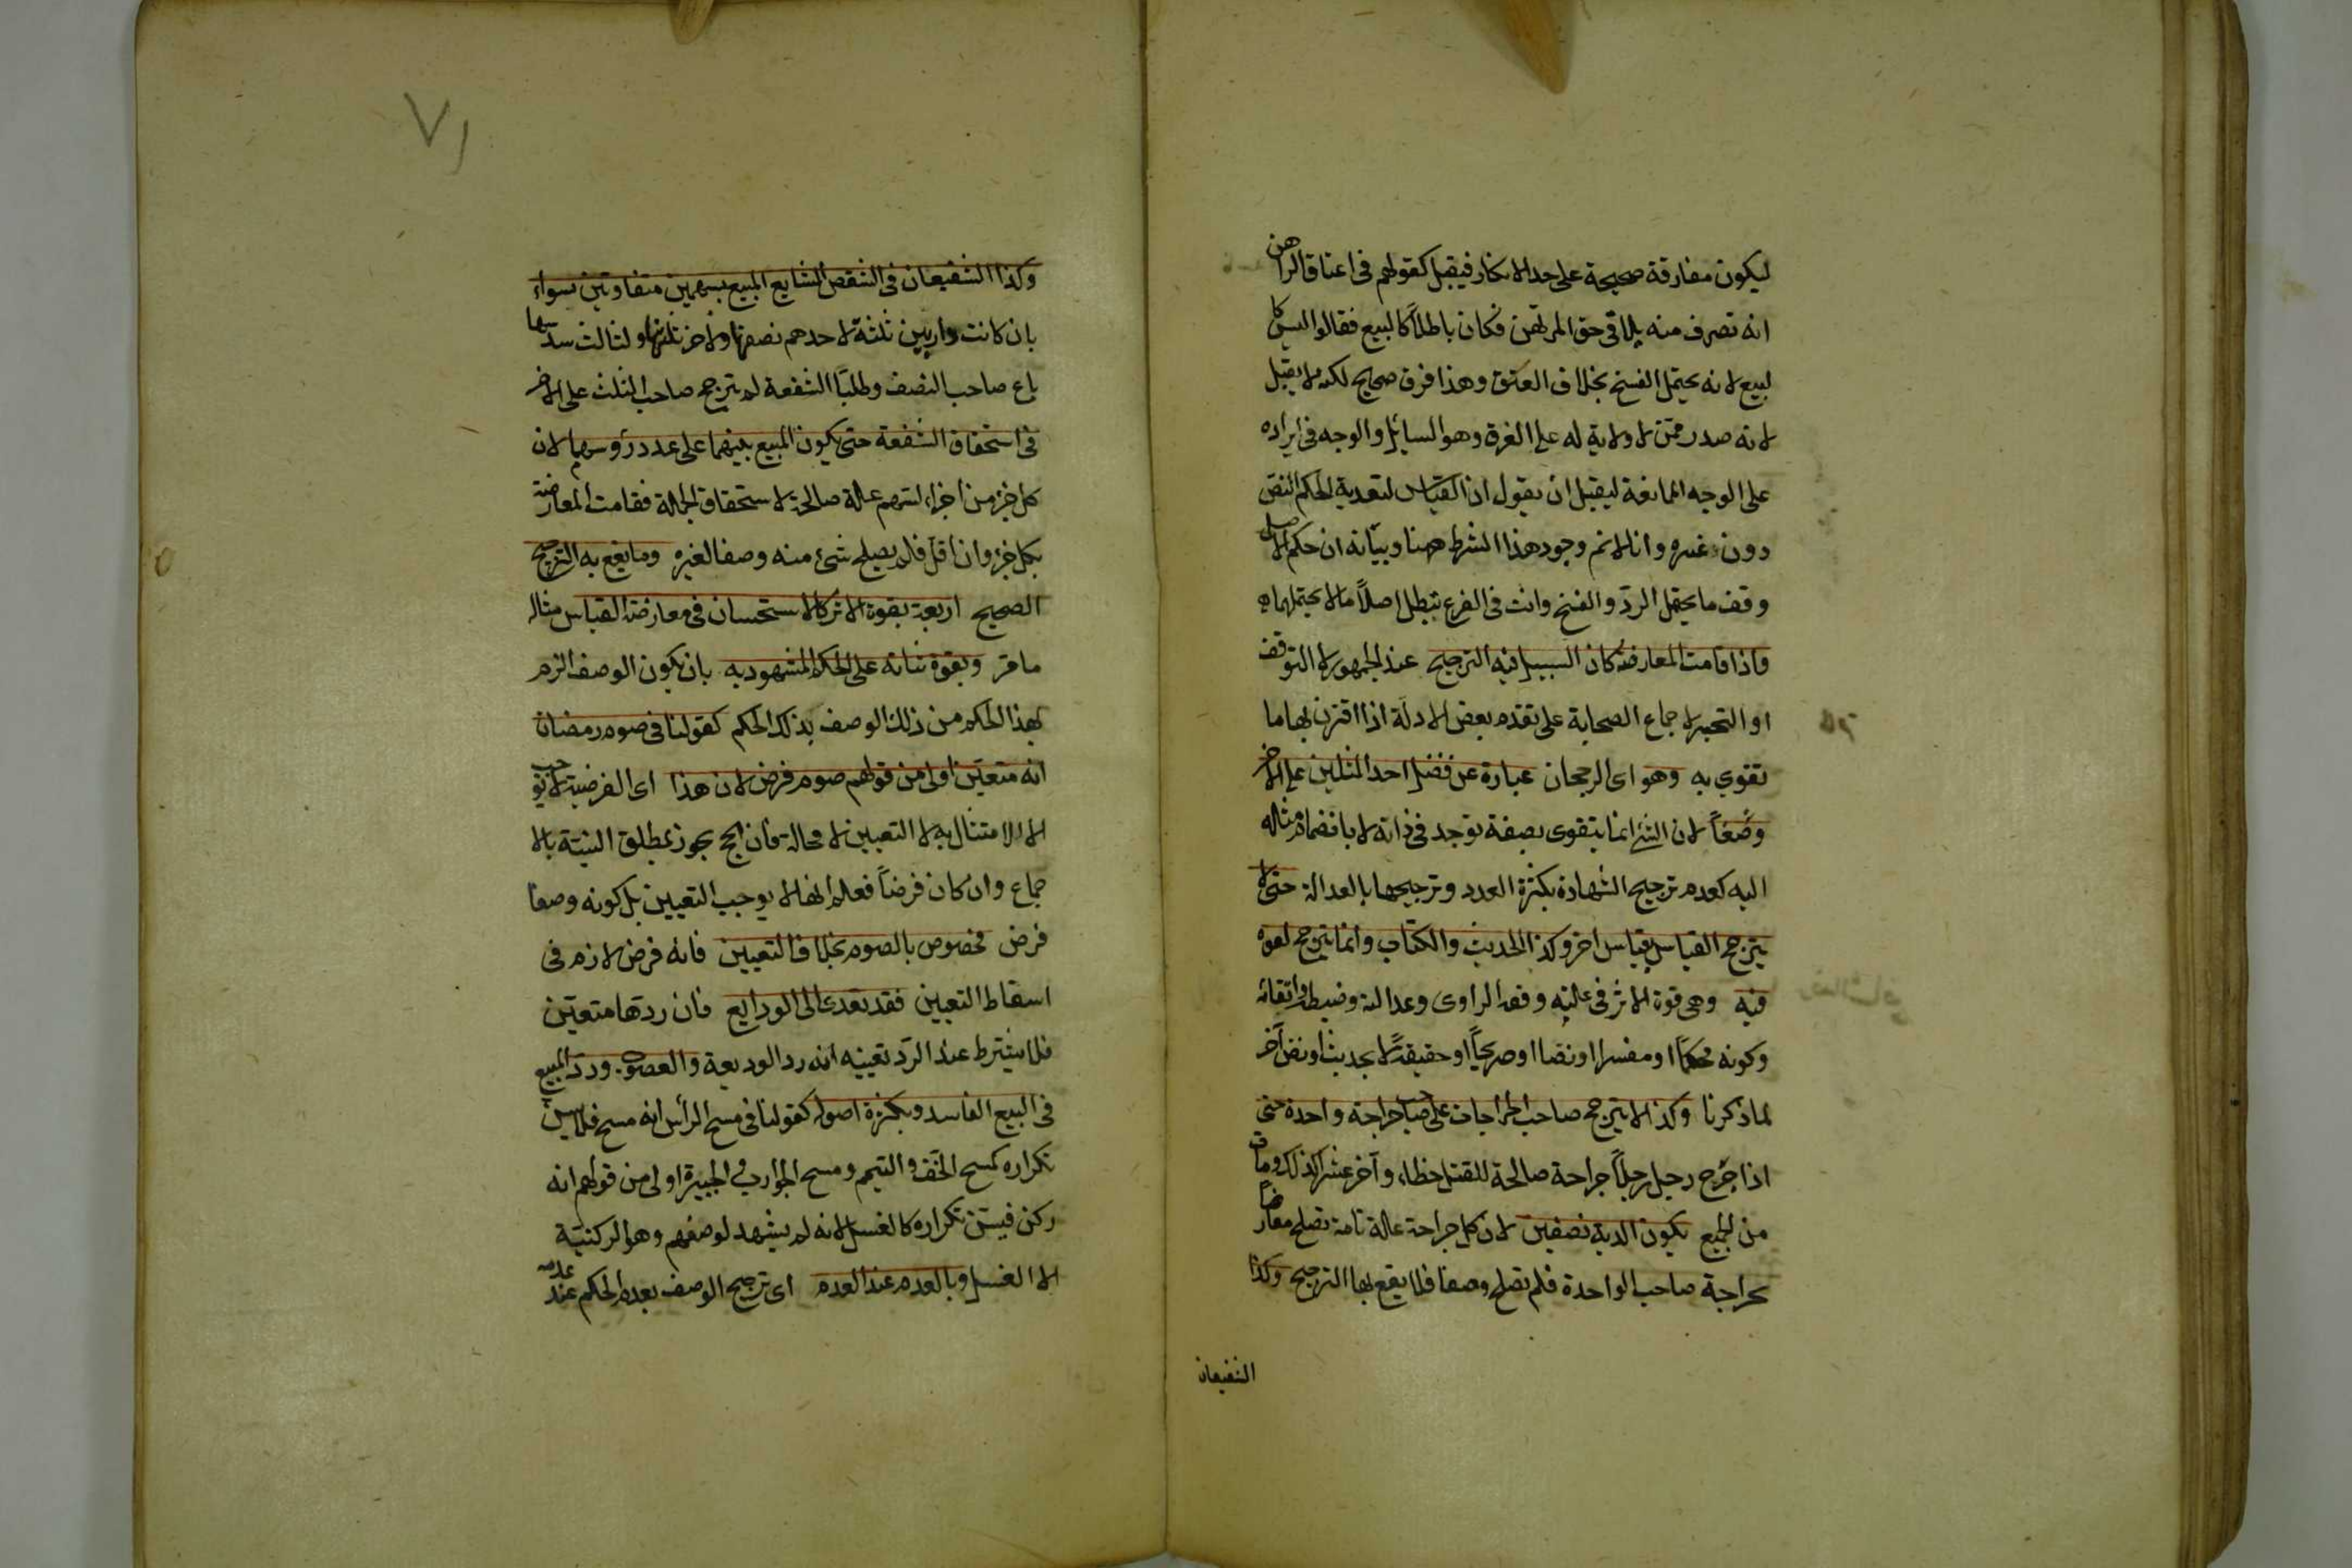 ليكون مفارقة صحيحة على حد الانكار فيقبل كقولهم فى اعتاق الراهن
انه تصرف منه يلاقى حق المرتهن فكان باطلاً كالبيع فقالوا ليس كا
لبيع لانه يحتمل الفسخ بخلاف العتق وهذا فرق صحيح لكنه لا يقبل
لانه صدر ممن لا ولاية له على الفرق وهو السايل والوجه فى ايراده
على الوجه الممانعة ليقبل ان يقول ان القياس لتعدية الحكم النص
دون غيره وانا لانم وجود هذا الشرط ههنا وبيانه ان حكم الاصل
وقف ما يحتمل الرد والفسخ وانت فى الفرع تبطل اصلاً ما لا يحتملهما
واذا قامت المعارضة كان السبيل فيه الترجيح عند الجمهور لا التوقف
او التخير لاجماع الصحابة على تقدم بعض الادلة اذا اقترن بها ما
تقوى به وهو اى الرجحان عبارة عن فضل احد المثلين على الاخر
وصفاً لان الشئ انما يتقوى بصفة توجد فى ذاته لا بانضمام مثاله
اليه كعدم ترجيح الشهادة بكثرة العدد وترجيحها بالعدالة حتى لا
يترجح القياس بقياس اخر وكذا الحديث والكتاب وانما يترجح لقوه
فيه وهى قوة الاثر فى علته وفقه الراوى وعدالته وضبطه واتقانه
وكونه محكماً او مفسرا او نصا او صريحاً او حقيقة لا بحديث او نص آخر
لما ذكرنا وكذا لا يترجح صاحب الجراحات على صاحب جراحة واحدة حتى
اذا جرح رجل رجلاً جراحة صالحة للقتل خطاء وآخر عشر كذلك ومات
من الجميع يكون الدية نصفين لان كل جراحة علة تامة تصلح معارضا
بجراحة صاحب الواحدة فلم تصلح وصفا فلا يقع بها الترجيح وكذا
الشفيعان
٧١
وكذا الشفيعان فى الشقص الشايع المبيع بسهمين متفاوتين سواء
بان كانت دار بين ثلثة لاحدهم نصفها ولاخر ثلثها ولثالث سدسها
باع صاحب النصف وطلبا الشفعة لم يترجح صاحب الثلث على الاخر
فى استحقاق الشفعة حتى يكون المبيع بينهما على عدد رؤسهما لان
كل جزء من اجزاء السهم علة صالحة لاستحقاق الجملة فقامت المعارضة
بكل جزء وان اقل فلم يصلح شئ منه وصفا لغيره وما يقع به الترجيح
الصحيح اربعة بقوة الاثر كالاستحسان فى معارضة القياس مثاله
ما مر وبقوة ثباته على الحكم المشهود به بان يكون الوصف الزم
لهذا الحكم من ذلك الوصف بذلك الحكم كقولنا فى صوم رمضان
انه متعين اولى من قولهم صوم فرض لان هذا اى الفرضية لا توجب
الا الامتثال به لا التعيين لا محالة فان الحج يجوز بمطلق النية بالا
جماع وان كان فرضاً فعلم انها لا يوجب التعيين بل كونه وصفا
فرض مخصوص بالصوم بخلاف التعيين فانه فرض لازم فى
اسقاط التعيين فقد تعدى الى الودايع فان ردها متعين
فلا يشترط عند الرد تعيينه انه رد الوديعة والغصوب ورد المبيع
فى البيع الفاسد وبكثرة اصوله كقولنا فى مسح الرأس انه مسح فلا يسن
تكراره كمسح الخف والتيمم ومسح الجوارب والجبيرة اولى من قولهم انه
ركن فيسن تكراره كالغسل لانه لم يشهد لوصفهم وهو الركنية
الا الغسل وبالعدم عند العدم اى ترجيح الوصف بعدم الحكم عند عدمه